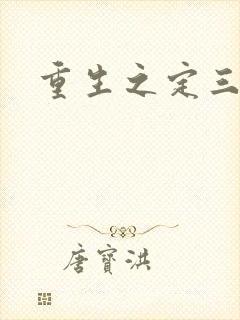 重生之定三
唐寶洪